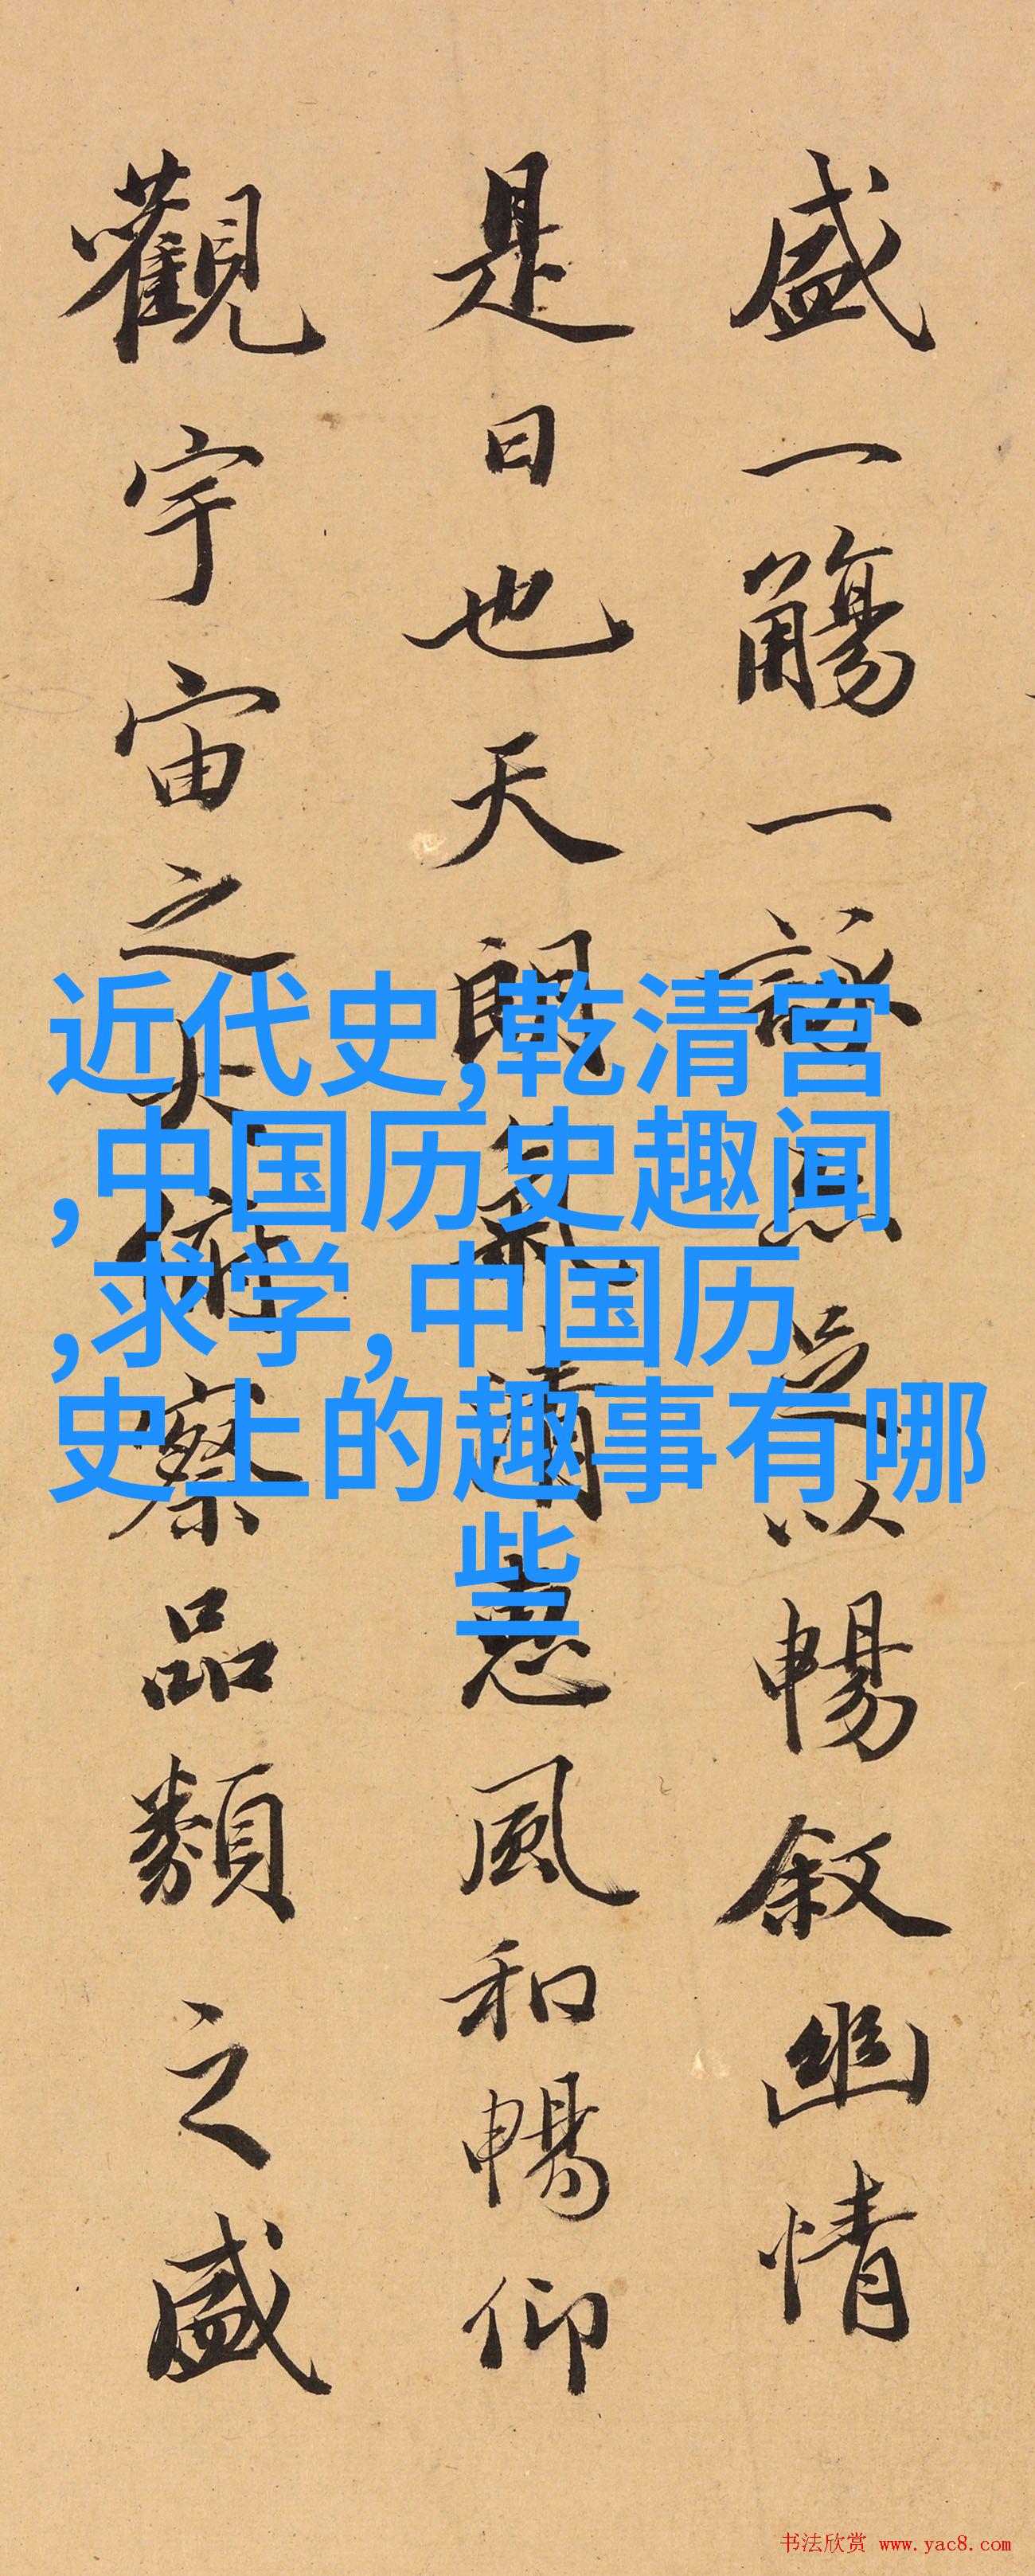 盛一觴一詠亦足以暢叙幽情
是日也天朗氣清惠風和暢仰
觀宇宙之大俯察品類之盛
近代史,乾清宫
,中国历史趣闻
,求学,中国历
史上的趣事有哪
些
书法欣赏 www.yac8.com